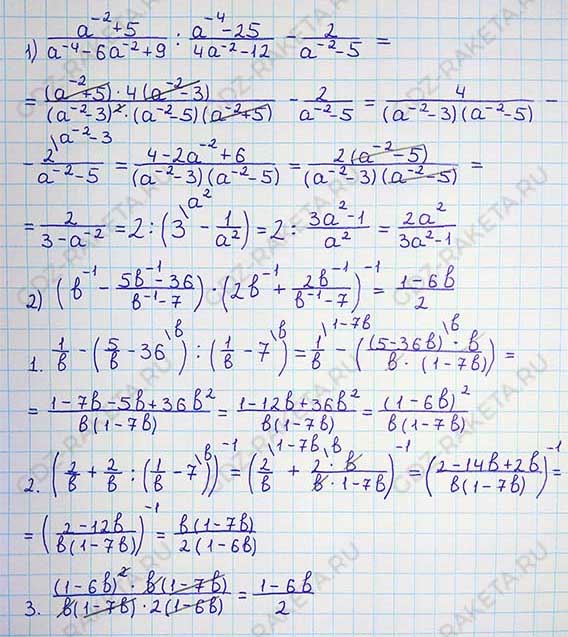 1) (a^-2+5)/(a^-4-6a^-2+9) : (a^-4-25)/(4a^-2-12) - 2/(a^-2-5) =
= ((a^-2+5)·4(a^-2-3))/((a^-2-3)^2·(a^-2-5)(a^-2+5)) - 2/(a^-2-5) = 4/((a^-2-3)(a^-2-5)) -
- 2\a^-2-3/(a^-2-5) = (4-2a^-2+6)/((a^-2-3)(a^-2-5)) = 2(a^-2-5)/((a^-2-3)(a^-2-5)) =
= 2/(3-a^-2) = 2:(3\a^2 - 1/a^2) = 2: (3a^2-1)/a^2 = 2a^2/(3a^2-1)
2) (b^-1 - (5b^-1-36)/(b^-1-7))·(2b^-1 + 2b^-1/(b^-1-7))^-1 = (1-6b)/2
1. 1/b - (5/b - 36\b):(1/b - 7\b) = 1/b\1-7b - ((5-36b)·b\b/(b·(1-7b))) =
= (1-7b-5b+36b^2)/(b(1-7b)) = (1-12b+36b^2)/(b(1-7b)) = (1-6b)^2/(b(1-7b))
2. (2/b + 2/b:(1/b - 7\b))^-1 = (2/b\1-7b + 2·b\b/(b·1-7b))^-1 = ((2-14b+2b)/(b(1-7b)))^-1 =
= ((2-12b)/(b(1-7b)))^-1 = b(1-7b)/(2(1-6b))
3. ((1-6b)^2·b(1-7b))/(b(1-7b)·2(1-6b)) = (1-6b)/2
GDZ-RAKETA.RU